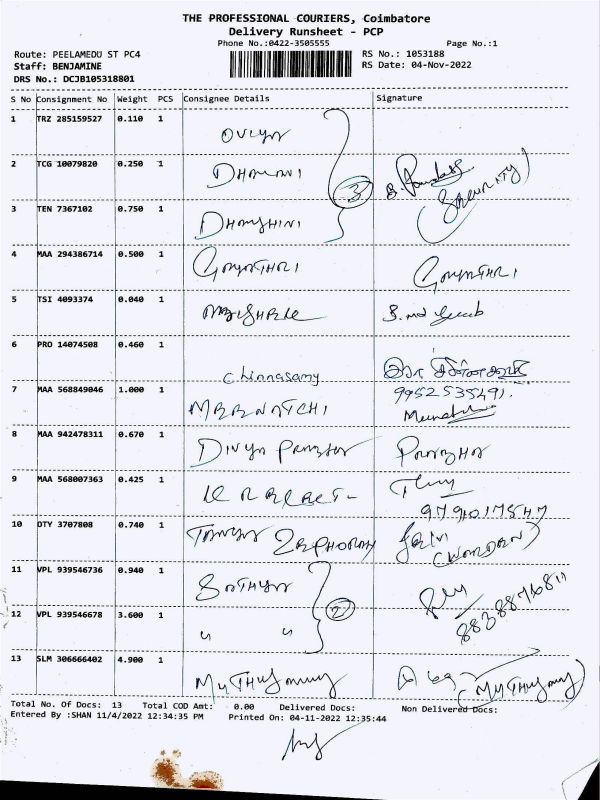 THE PROFESSIONAL COURIERS, Coimbatore
Delivery Runsheet - PCP
Phone No.:0422-3505555 Page No.:1
Route: PEELAMEDU ST PC4 RS No.: 1053188
Staff: BENJAMINE RS Date: 04-Nov-2022
DRS No.: DCJB105318801
S No Consignment No Weight PCS Consignee Details Signature
1 TRZ 285159527 0.110 1
2 TCG 10079820 0.250 1 DHARANI 3 (SECURITY)
3 TEN 7367102 0.750 1 DHARSHINI
4 MAA 294386714 0.500 1 GAYATHRI GAYATHRI
5 TSI 4093374 0.040 1
6 PRO 14074508 0.460 1 Chinnasamy
7 MAA 568849046 1.000 1 MEENATCHI 9952535491.
8 MAA 942478311 0.670 1 DIVYA
9 MAA 568007363 0.425 1
9791017547
10 DTY 3707808 0.740 1 (WARDEN)
11 VPL 939546736 0.940 1 SATHYA
12 VPL 939546678 3.600 1 " " 2
13 SLM 306666402 4.900 1 MUTHUSAMY (MUTHUSAMY)
Total No. Of Docs: 13 Total COD Amt: 0.00 Delivered Docs: Non Delivered Docs:
Entered By :SHAN 11/4/2022 12:34:35 PM Printed On: 04-11-2022 12:35:44